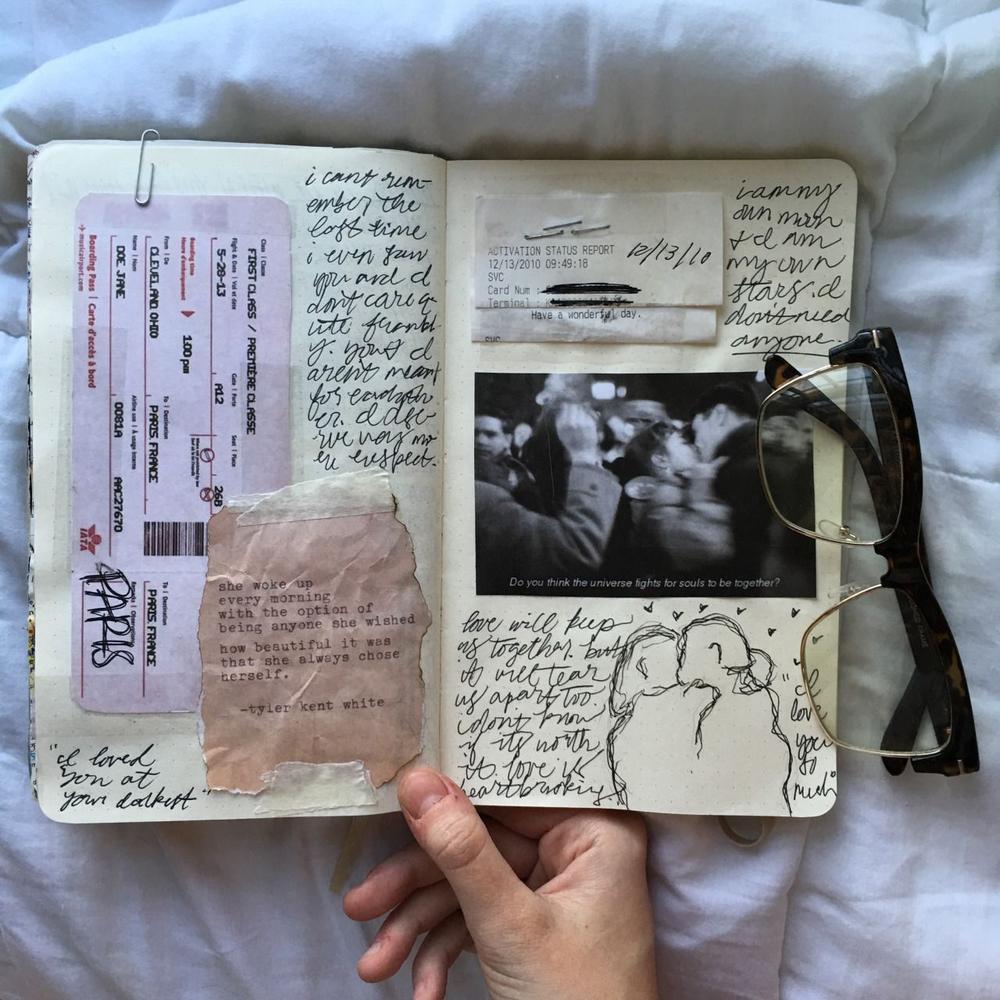 Class | Classe
FIRST CLASS / PREMIÈRE CLASSE
Flight & Date | Vol et date
5-28-13
Gate | Porte
A12
Seat | Place
26B
Boarding time
Heure d'embarquement
1:00 pm
From | De
CLEVELAND OHIO
To | Destination
PARIS, FRANCE
Name | Nom
DOE JANE
Airline use | À usage interne
0081A
AAC27670
Boarding Pass | Carte d'accès à bord
musicairport.com
IATA
To | Destination
PARIS, FRANCE
PARIS
i cant rem-
ember the
last time
i even saw
you and i
dont care q-
uite frankl-
y. you & i
arent meant
for eachoth-
er.
en respect.
she woke up
every morning
with the option of
being anyone she wished
how beautiful it was
that she always chose
herself.
-tyler kent white
"i loved
you at
your darkest"
ACTIVATION STATUS REPORT
12/13/10
12/13/2010 09:49:18
SVC
Card Num :
Terminal :
Have a wonderful day.
SVC
i am my
own moon
& i am
my own
stars. i
don't need
anyone.
Do you think the universe fights for souls to be together?
love will keep
us together. but
it will tear
us apart too.
i dont know
if its worth
it. love is
heartbreaking.
"i
love
you
so
much"